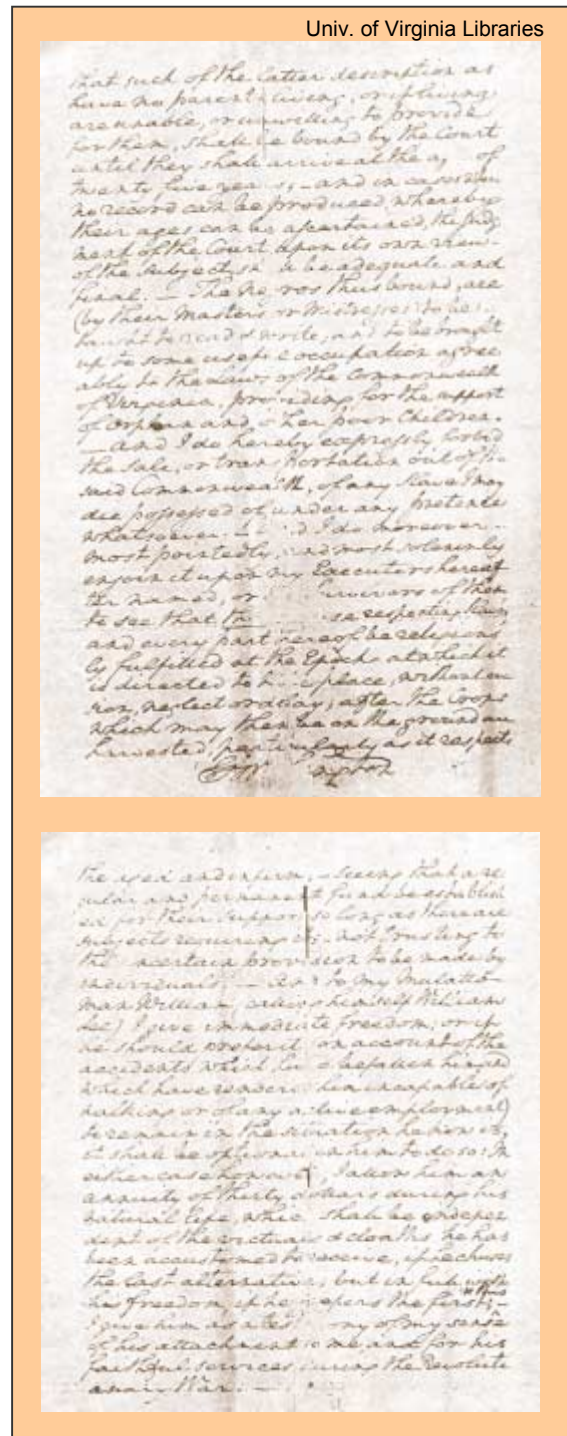 Univ. of Virginia Libraries
that such of the latter description as
have no parents living, or if living
are unable, or unwilling to provide
for them, shall be bound by the Court
until they shall arrive at the of
twenty five years; – and in cases where
no record can be produced, whereby
their ages can be ascertained, the judg
ment of the Court, upon its own view
of the subject, be adequate and
final. – The thus bound, are
(by their Masters or Mistresses) to be
taught to read & write, and to be brought
up to some useful occupation, agree
ably to the Laws of the Commonwealth
of Virginia, providing for the support
of Orphan and other poor Children.
– and I do hereby expressly forbid
the sale, or transportation out of the
said Commonwealth, of any Slave I may
die possessed of, under any pretence
whatsoever. – I do moreover
most pointedly, and most solemnly
enjoin it upon my Executors hereaf
ter named, or of them
to see that respecting Slaves
and every part thereof be religious
ly fulfilled at the Epoch at which it
is directed to place, without eva
sion, neglect or delay, after the Crops
which may then be on the ground are
harvested, particularly as it respects
the aged and infirm; – seeing that a re
gular and permanent fund be establish
ed for their support so long as there are
subjects requiring it; – not trusting to
the uncertain provision to be made by
individuals. – And to my Mulatto
man William (calling himself William
Lee) I give immediate freedom; or if
he should prefer it (on account of the
accidents which befallen him, and
which have rendered him incapable of
walking or of any active employment)
to remain in the situation he now is,
it shall be optional in him to do so: In
either case however, I allow him an
annuity of thirty dollars during his
natural life, which shall be indepen
dent of the victuals & cloaths he has
been accustomed to receive, if he chuses
the last alternative; but in full with
his freedom, if he prefers the first; –
I give him as a my of my sense
of his attachment to me, and for his
faithful services during the Revoluti
onary War. –